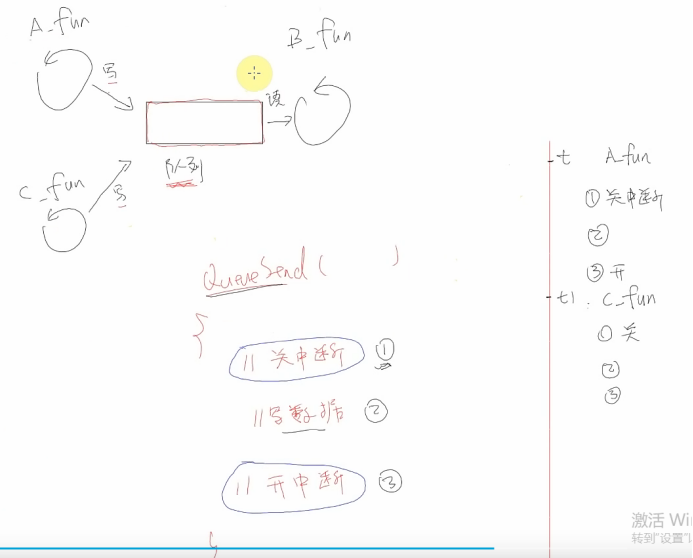 A_fun
B_fun
写
读
队列
C_fun
写
t A_fun
①关中断
②
③开
t1. C_fun
①关
②
③
QueueSend( )
{
// 关中断 ①
// 写数据 ②
// 开中断 ③
}
激活 Win
转到"设置"以